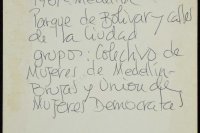 Parque de Bolivar y calles
de la Ciudad
grupos: Colectivo de
Mujeres de Medellin-
Brujas y Union de
Mujeres Democratas